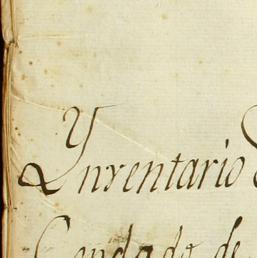 Ynventario
Condado de